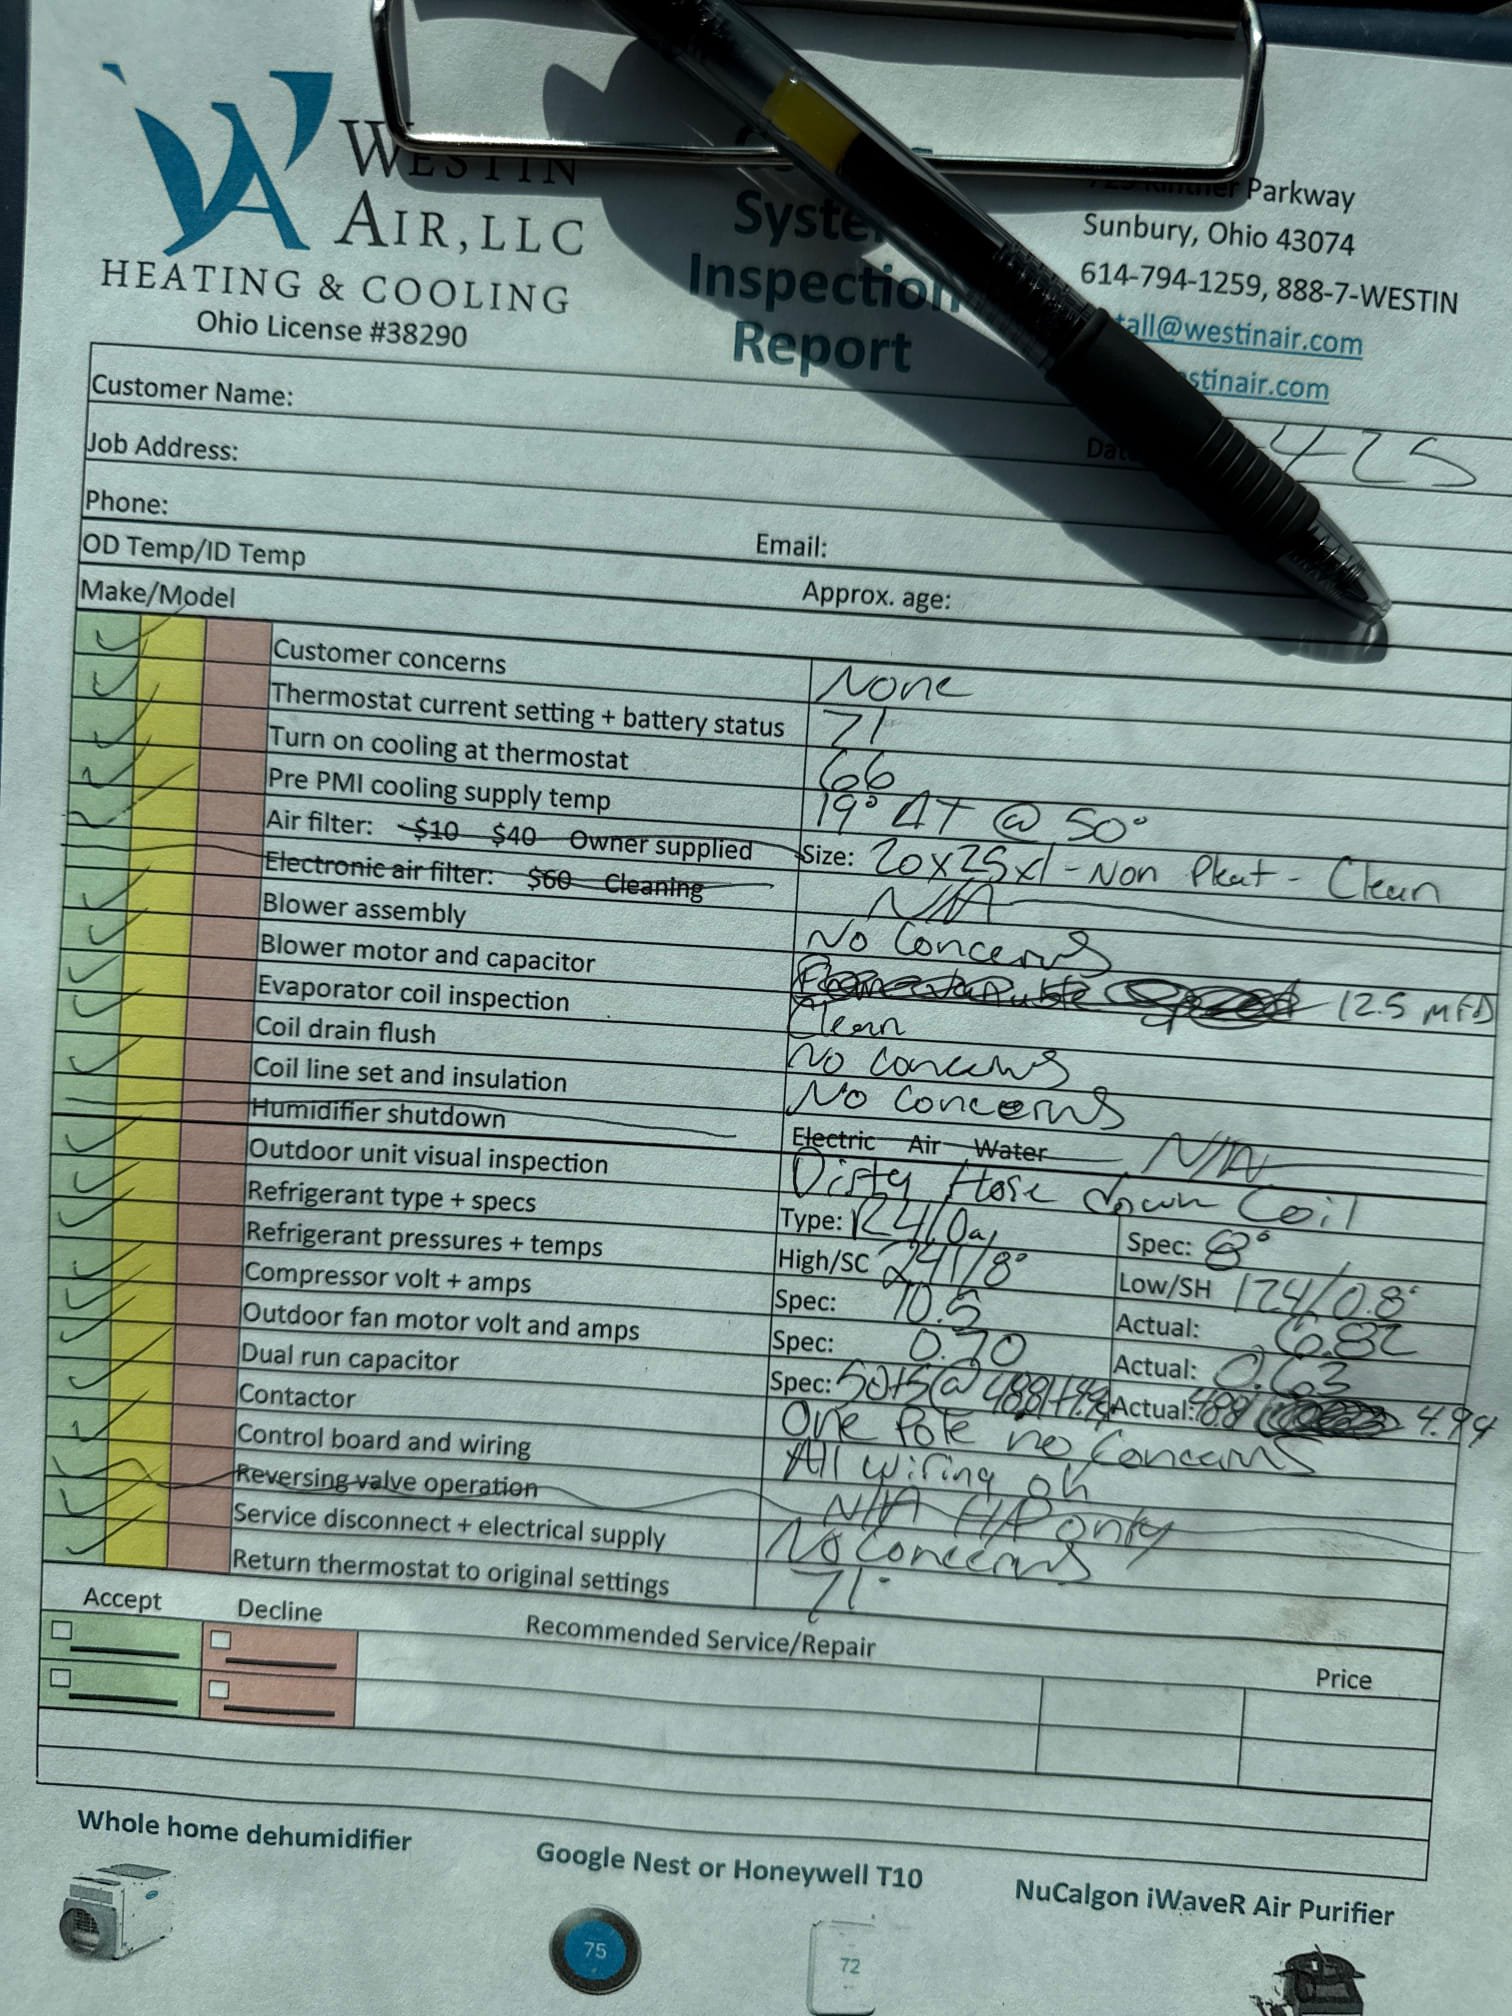 WESTIN
AIR, LLC
HEATING & COOLING
Ohio License #38290
Inspection
Report
Parkway
Sunbury, Ohio 43074
614-794-1259, 888-7-WESTIN
@westinair.com
Customer Name:
4-25
Job Address:
Phone:
Email:
OD Temp/ID Temp
Approx. age:
Make/Model
Customer concerns None
Thermostat current setting + battery status 71
Turn on cooling at thermostat 66
Pre PMI cooling supply temp 19° ΔT @ 50°
Air filter: $10 $40 Owner supplied Size: 20x25x1 - Non Pleat - Clean
Electronic air filter: $60 Cleaning N/A
Blower assembly No Concerns
Blower motor and capacitor 12.5 MFD
Evaporator coil inspection Clean
Coil drain flush No concerns
Coil line set and insulation No concerns
Humidifier shutdown Electric Air Water N/A
Outdoor unit visual inspection Dirty Hose down Coil
Refrigerant type + specs Type: R410a Spec: 8°
Refrigerant pressures + temps High/SC 241/8° Low/SH 124/0.8°
Compressor volt + amps Spec: 10.5 Actual: 6.82
Outdoor fan motor volt and amps Spec: 0.70 Actual: 0.63
Dual run capacitor Spec: 50+5 @ Actual: 4.94
Contactor One Pole no Concerns
Control board and wiring All wiring ok
Reversing valve operation N/A H/P only
Service disconnect + electrical supply No Concerns
Return thermostat to original settings 71°
Accept Decline Recommended Service/Repair Price
Whole home dehumidifier
Google Nest or Honeywell T10
NuCalgon iWaveR Air Purifier
75
72